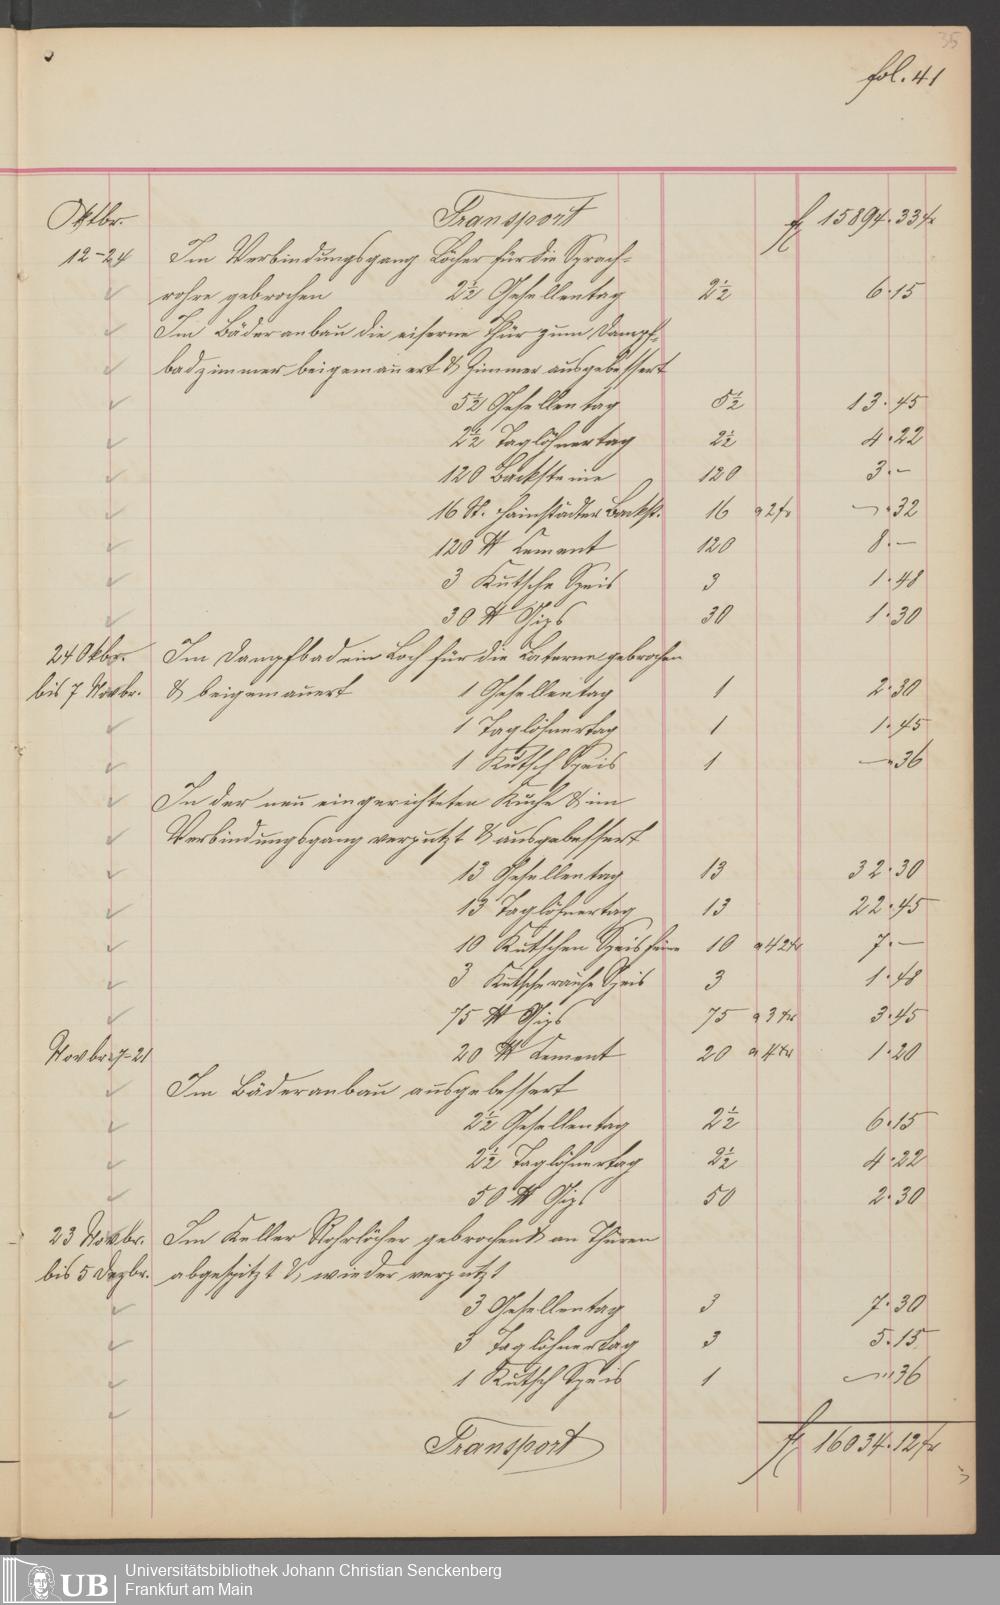 35
fol. 41
Oktbr. Transport fl 15894. 33 kr
12-24 Im Verbindungsgang Löcher für die Sprach-
rohre gebrochen 2½ Gesellentag 2½ 6. 15
Im Bäderanbau die eiserne Thür zum Dampf-
badzimmer beigemauert & Zimmer ausgebessert
5½ Gesellentag 5½ 13. 45
2½ Taglöhnertag 2½ 4. 22
120 Backsteine 120 3. –
16 St. Hainstädter Backst. 16 a 2 kr – . 32
120 ℔ Cement 120 8. –
3 Kutsche Speis 3 1. 48
30 ℔ Gips 30 1. 30
24 Okbr. Im Dampfbad ein Loch für die Laterne gebrochen
bis 7 Novbr. & beigemauert 1 Gesellentag 1 2. 30
1 Taglöhnertag 1 1. 45
1 Kutsch Speis 1 – . 36
In der neu eingerichteten Küche & im
Verbindungsgang verputzt & ausgebessert
13 Gesellentag 13 32. 30
13 Taglöhnertag 13 22. 45
10 Kutschen Speis feine 10 a 42 kr 7. –
3 Kutsche rauhe Speis 3 1. 48
75 ℔ Gips 75 a 3 kr 3. 45
Novbr. 7-21 20 ℔ Cement 20 a 4 kr 1. 20
Im Bäderanbau ausgebessert
2½ Gesellentag 2½ 6. 15
2½ Taglöhnertag 2½ 4. 22
50 ℔ Gips 50 2. 30
23 Novbr. Im Keller Rohrlöcher gebrochen & an Thüren
bis 5 Dezbr. abgespitzt & wieder verputzt
3 Gesellentag 3 7. 30
3 Taglöhnertag 3 5. 15
1 Kutsch Speis 1 – . 36
Transport fl 16034. 12 kr
UB Universitätsbibliothek Johann Christian Senckenberg
Frankfurt am Main